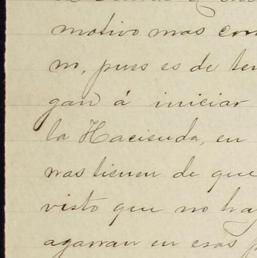 motivo mas con
m, pues es de ten
gan á iniciar
la Hacienda, en
nas tienen de que
visto que no hay
agarran en esos p